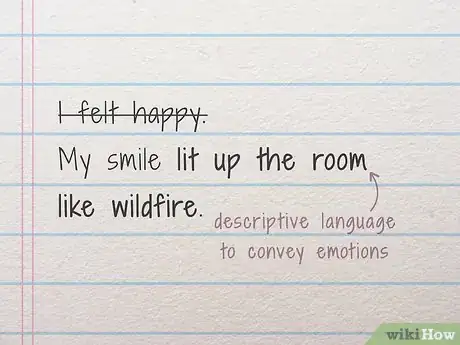 I felt happy.
My smile lit up the room
like wildfire.
descriptive language
to convey emotions
wikiHow